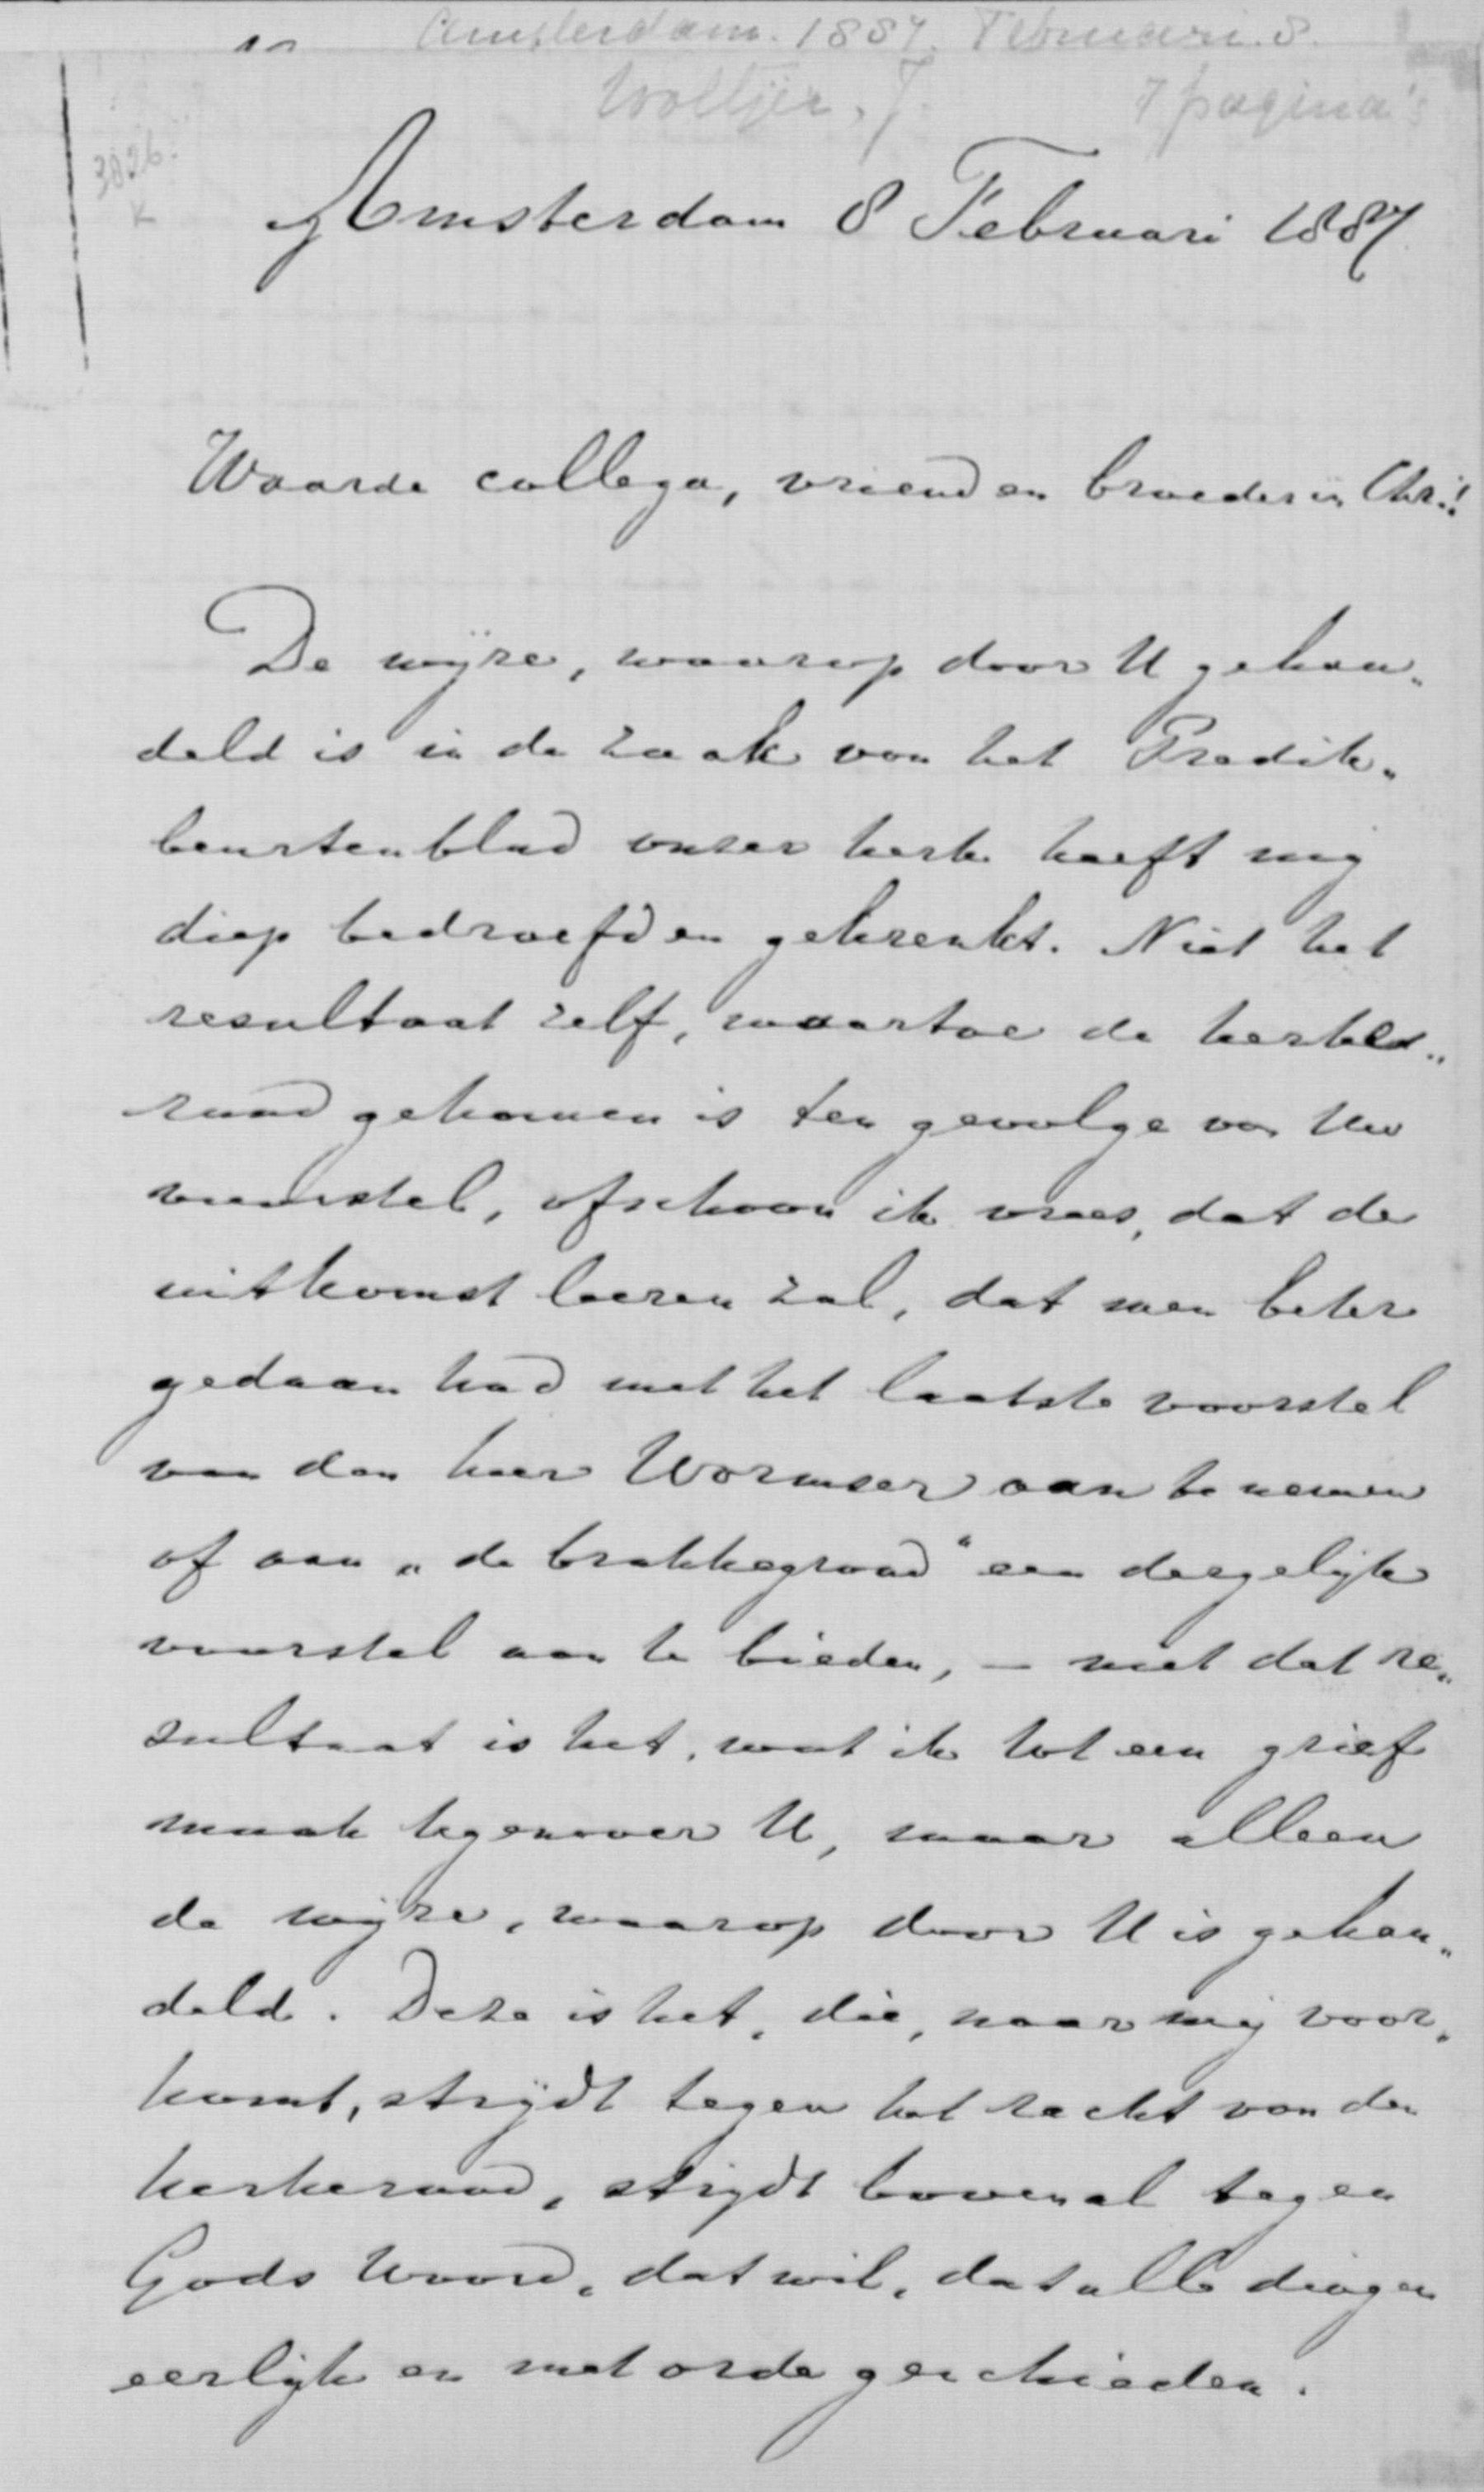 Amsterdam. 1887. Februari. 8.
Woltjer, J. 7 pagina's
3826.
K
Amsterdam 8 Februari 1887.
Waarde collega, vriend en broeder in Chr.!
De wijze, waarop door U gehan„
deld is in de zaak van het Predik„
beurtenblad onzer kerk heeft mij
diep bedroefd en gekrenkt. Niet het
resultaat zelf, waartoe de kerke„
raad gekomen is ten gevolge van Uw
voorstel, ofschoon ik vrees, dat de
uitkomst leeren zal, dat men beter
gedaan had met het laatste voorstel
van den heer Wormser aan te nemen
of aan „de brakkegrond" een dergelijk
voorstel aan te bieden, — niet dat re„
sultaat is het, wat ik tot een grief
maak tegenover U, maar alleen
de wijze, waarop door U is gehan„
deld. Deze is het, die, naar mij voor„
komt, strijdt tegen het recht van den
kerkeraad, strijdt bovenal tegen
Gods Woord, dat wil, dat alle dingen
eerlijk en met orde geschieden.